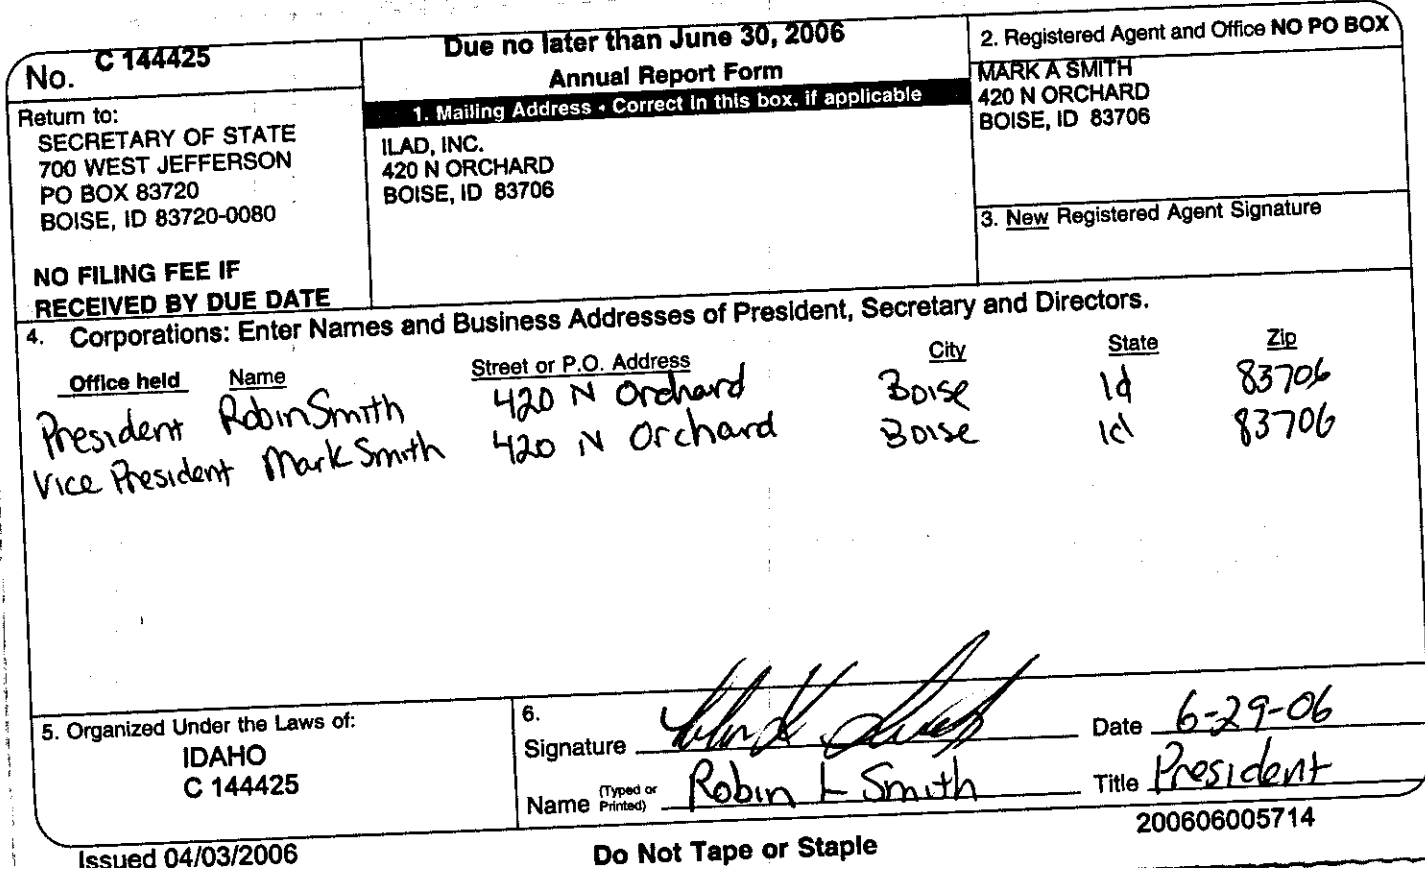 No. C 144425
Return to:
SECRETARY OF STATE
700 WEST JEFFERSON
PO BOX 83720
BOISE, ID 83720-0080
NO FILING FEE IF
RECEIVED BY DUE DATE
Due no later than June 30, 2006
Annual Report Form
1. Mailing Address • Correct in this box, if applicable
ILAD, INC.
420 N ORCHARD
BOISE, ID 83706
2. Registered Agent and Office NO PO BOX
MARK A SMITH
420 N ORCHARD
BOISE, ID 83706
3. New Registered Agent Signature
4. Corporations: Enter Names and Business Addresses of President, Secretary and Directors.
Office held Name Street or P.O. Address City State Zip
President Robin Smith 420 N Orchard Boise Id 83706
Vice President Mark Smith 420 N Orchard Boise Id 83706
5. Organized Under the Laws of:
IDAHO
C 144425
6.
Signature Date 6-29-06
Name (Typed or Printed) Robin L Smith Title President
200606005714
Issued 04/03/2006 Do Not Tape or Staple